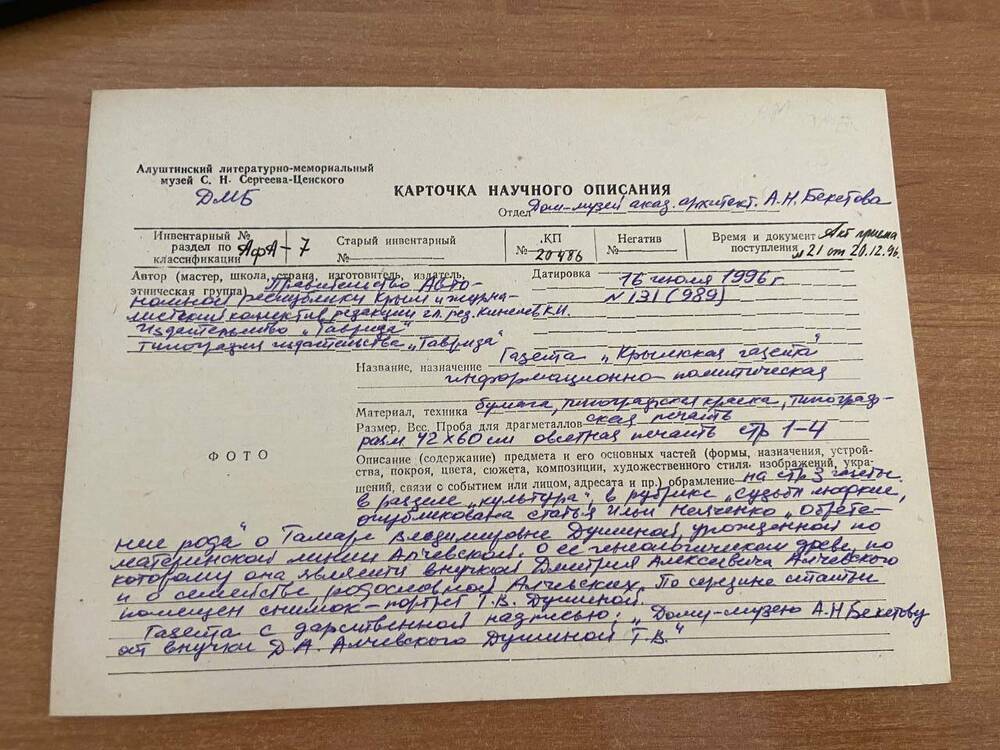 Алуштинский литературно-мемориальный
музей С. Н. Сергеева-Ценского
ДМБ
КАРТОЧКА НАУЧНОГО ОПИСАНИЯ
Отдел Дом-музей акад. архитект. А.Н. Бекетова
Инвентарный №
раздел по
классификации АфА-7
Старый инвентарный
№
КП
№ 20486
Негатив
№
Время и документ Акт приема
поступления №21 от 20.12.96.
Автор (мастер, школа, страна, изготовитель, издатель,
этническая группа) Правительство Авто-
номной республики Крым и журна-
листский коллектив редакции гл. ред.
Издательство „Таврида"
типография издательства „Таврида"
Датировка 16 июля 1996 г
N 131 (989)
Газета „Крымская газета"
Название, назначение
информационно-политическая
Материал, техника бумага, типографская краска, типограф-
ская печать
Размер. Вес. Проба для драгметаллов
разм 42 х 60 см печать стр 1-4
ФОТО
Описание (содержание) предмета и его основных частей (формы, назначения, устрой-
ства, покроя, цвета, сюжета, композиции, художественного стиля, изображений, укра-
шений, связи с событием или лицом, адресата и пр.) обрамление на стр 3 газеты
в разделе „культура", в рубрике „судьбы людские,
опубликована статья Ильи „Обрете-
ние рода" о Тамаре Владимировне Душиной, урожденной по
материнской линии Алчевской. О ее генеологическом древе, по
которому она является внучкой Дмитрия Алексеевича Алчевского
и о семействе, родословной Алчевских. По середине статьи
помещен снимок-портрет Т.В. Душиной.
Газета с дарственной надписью: „Дому-музею А.Н Бекетову
от внучки Д А. Алчевского Душиной Т.В."